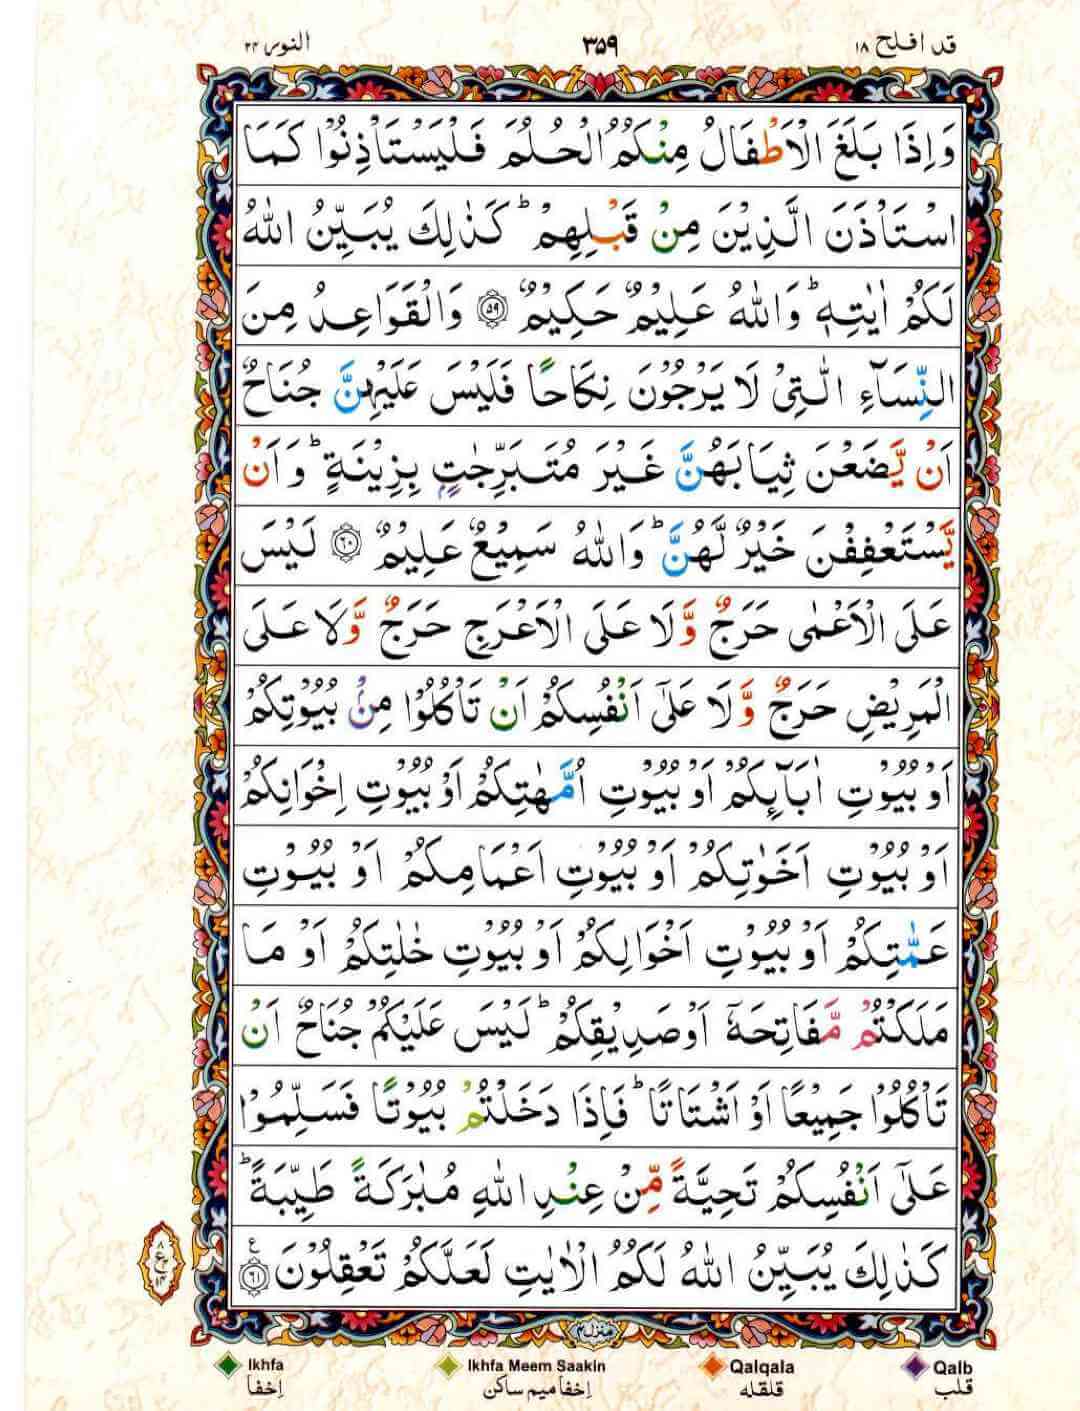 قد افلح ۱۸ ۳۵۹ النور ۲۴
وَاِذَا بَلَغَ الْاَطْفَالُ مِنْكُمُ الْحُلُمَ فَلْيَسْتَاْذِنُوْا كَمَا
اسْتَاْذَنَ الَّذِيْنَ مِنْ قَبْلِهِمْ ؕ كَذٰلِكَ يُبَيِّنُ اللّٰهُ
لَكُمْ اٰيٰتِهٖ ؕ وَاللّٰهُ عَلِيْمٌ حَكِيْمٌ ۝۵۹ وَالْقَوَاعِدُ مِنَ
النِّسَآءِ الّٰتِيْ لَا يَرْجُوْنَ نِكَاحًا فَلَيْسَ عَلَيْهِنَّ جُنَاحٌ
اَنْ يَّضَعْنَ ثِيَابَهُنَّ غَيْرَ مُتَبَرِّجٰتٍۭ بِزِيْنَةٍ ؕ وَاَنْ
يَّسْتَعْفِفْنَ خَيْرٌ لَّهُنَّ ؕ وَاللّٰهُ سَمِيْعٌ عَلِيْمٌ ۝۶۰ لَيْسَ
عَلَى الْاَعْمٰى حَرَجٌ وَّلَا عَلَى الْاَعْرَجِ حَرَجٌ وَّلَا عَلَى
الْمَرِيْضِ حَرَجٌ وَّلَا عَلٰٓى اَنْفُسِكُمْ اَنْ تَاْكُلُوْا مِنْۢ بُيُوْتِكُمْ
اَوْ بُيُوْتِ اٰبَآئِكُمْ اَوْ بُيُوْتِ اُمَّهٰتِكُمْ اَوْ بُيُوْتِ اِخْوَانِكُمْ
اَوْ بُيُوْتِ اَخَوٰتِكُمْ اَوْ بُيُوْتِ اَعْمَامِكُمْ اَوْ بُيُوْتِ
عَمّٰتِكُمْ اَوْ بُيُوْتِ اَخْوَالِكُمْ اَوْ بُيُوْتِ خٰلٰتِكُمْ اَوْ مَا
مَلَكْتُمْ مَّفَاتِحَهٗٓ اَوْ صَدِيْقِكُمْ ؕ لَيْسَ عَلَيْكُمْ جُنَاحٌ اَنْ
تَاْكُلُوْا جَمِيْعًا اَوْ اَشْتَاتًا ؕ فَاِذَا دَخَلْتُمْ بُيُوْتًا فَسَلِّمُوْا
عَلٰٓى اَنْفُسِكُمْ تَحِيَّةً مِّنْ عِنْدِ اللّٰهِ مُبٰرَكَةً طَيِّبَةً ؕ
كَذٰلِكَ يُبَيِّنُ اللّٰهُ لَكُمُ الْاٰيٰتِ لَعَلَّكُمْ تَعْقِلُوْنَ ۝۶۱ ع
۸ ع ۱۴
منزل ۴
Ikhfa Ikhfa Meem Saakin Qalqala Qalb
اِخفا اِخفا میم ساکن قلقله قلب